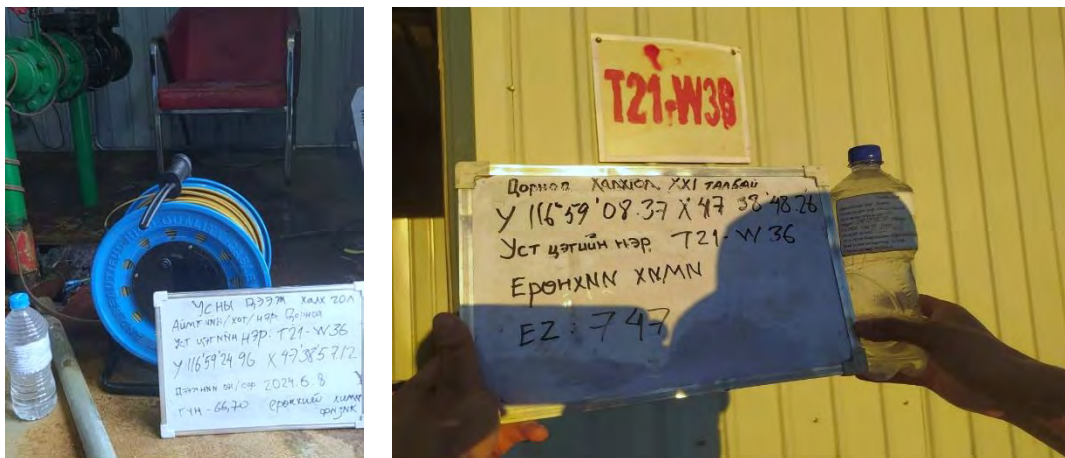 Усны Дээж Халх гол
Аймгийн/хот/нэр Дорнод
Уст цэгийн нэр: T21-W36
У 116°59'24.96 X 47°38'57.12
Дээжний он/сар 2024.6.8
ГҮН-66,70 ерөнхий хими
физик
T21-W36
Дорнод Халхгол XXI талбай
У 116°59'08.37 X 47 38'48.26
Уст цэгийн нэр. T21-W36
Ерөнхий хими
EZ: 747